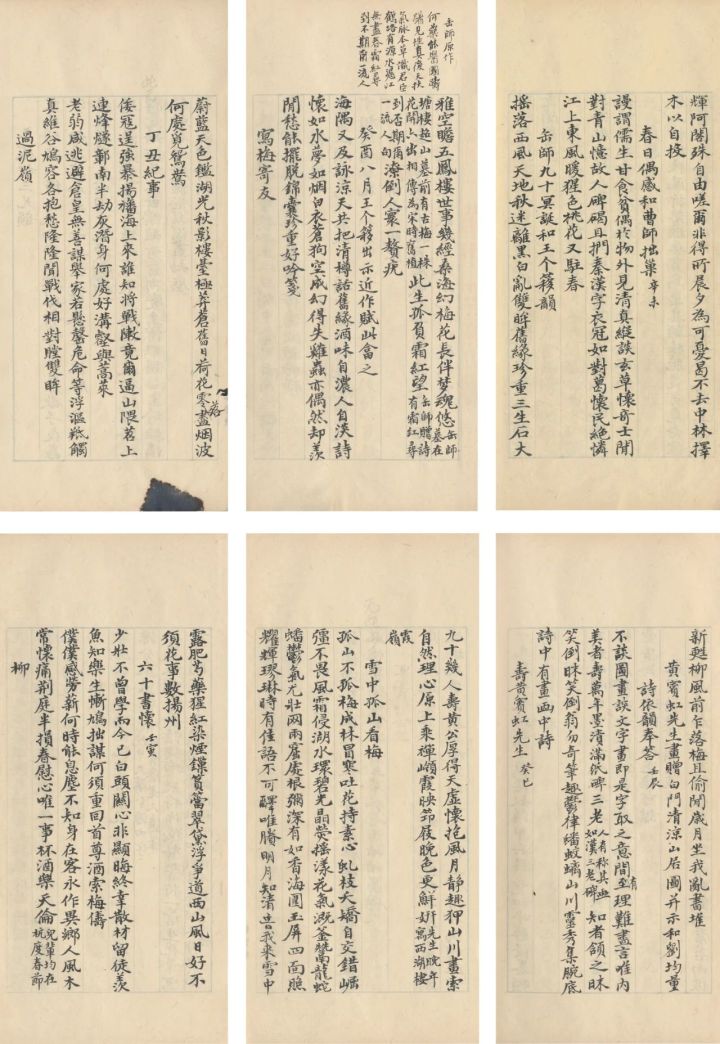 輝阿閣殊自由嗟爾非得所晨夕為可憂曷不去中林擇
木以自投
春日偶感和曹師拙巢 辛未
謾謂儒生甘食貧偶於物外見清真縱談玄草懷奇士閒
對青山憶故人碑碣且捫秦漢字衣冠如對葛懷民絕憐
江上東風暖猩色桃花又駐春
缶師九十冥誕和王个簃韻
搖落西風天地秋迷離黑白亂雙眸舊緣珍重三生石大
缶師原作
何藥能醫國
見
氣脈本草識君臣
鶴
無盡春霜紅尋
到不期爾一流人
雅空瞻五鳳樓世事幾經桑海幻梅花長伴夢魂悠 缶師墓在
塘棲超山墓前有古梅一株
花開六出相傳為宋時舊植 此生孤負霜紅望 缶師贈詩有霜紅尋
到否期爾
一流人句 潦倒人寰一贅疣
癸酉八月王个簃出示近作賦此畲之
海隅又及詠涼天共把清樽話舊緣酒味自濃人自淡詩
懷如水夢如烟白衣蒼狗空成幻得失雞蟲亦偶然却羨
閒愁能擺脫錦囊珍重好吟箋
寫梅寄友
蔚藍天色鑑湖光秋影樓臺極莽蒼舊日荷花零盡烟波
落
何處覓鴛鴦
丁丑紀事
倭寇逞強暴揚播海上來誰知將戰陳竟爾逼山隈苕上
連烽燧鄣南半劫灰潛身何處好溝壑與蒿萊
老豹咸逃避倉皇無善謀舉家若懸磬危命等浮漚羝觸
真維谷鳩容各抱愁隆隆聞戰伐相對瞠雙眸
過泥嶺
新甦柳風前乍落梅且偷閒歲月坐我亂書堆
黄賓虹先生畫贈白門清涼山居圖并示和劉均量
詩依韻奉答 壬辰
不談圖畫談文字畫即是字取之意間有至理難盡言唯內
美者壽萬年墨漬滿紙碑三老 人有稱其畫如漢三老碑 知者頷之昧
笑倒昧笑倒翁勿奇筆趣鬱律蟠蛟螭山川靈秀集腕底
詩中有畫畫中詩
壽黄賓虹先生 癸巳
九十幾人壽黄公厚得天虛懷抱風月靜趣狎山川畫索
自然理心原上乘禪嶺霞映笻屐晚色更鮮妍 先生晚年寫西湖棲
霞
嶺
雪中孤山看梅
孤山不孤梅成林冒寒吐花持素心虬枝夭矯自交錯崛
彊不畏風霜侵湖水環碧光晶熒搖漾花氣溉釜鬵南龍蛇
蟠鬱氣尤壯网兩窟處根彌深有如香海圍玉屏四面照
耀輝璆琳時有佳語不可譯唯賸明月知清音我來雪中
露肥芍藥猩紅染煙鎖篔簹翠黛浮爭道西山風日好不
須花事數揚州
六十書懷 壬寅
少壯不曾學而今已白頭關心非顯晦終幸散材留徒羡
魚知樂生慚鳩拙謀何須重回首尊酒索梅儔
僕僕感勞薪何時能息塵不知身在客永作異鄉人風木
常懷痛荆庭半損春慰心唯一事杯酒樂天倫 兒輩均在
杭度春節
柳